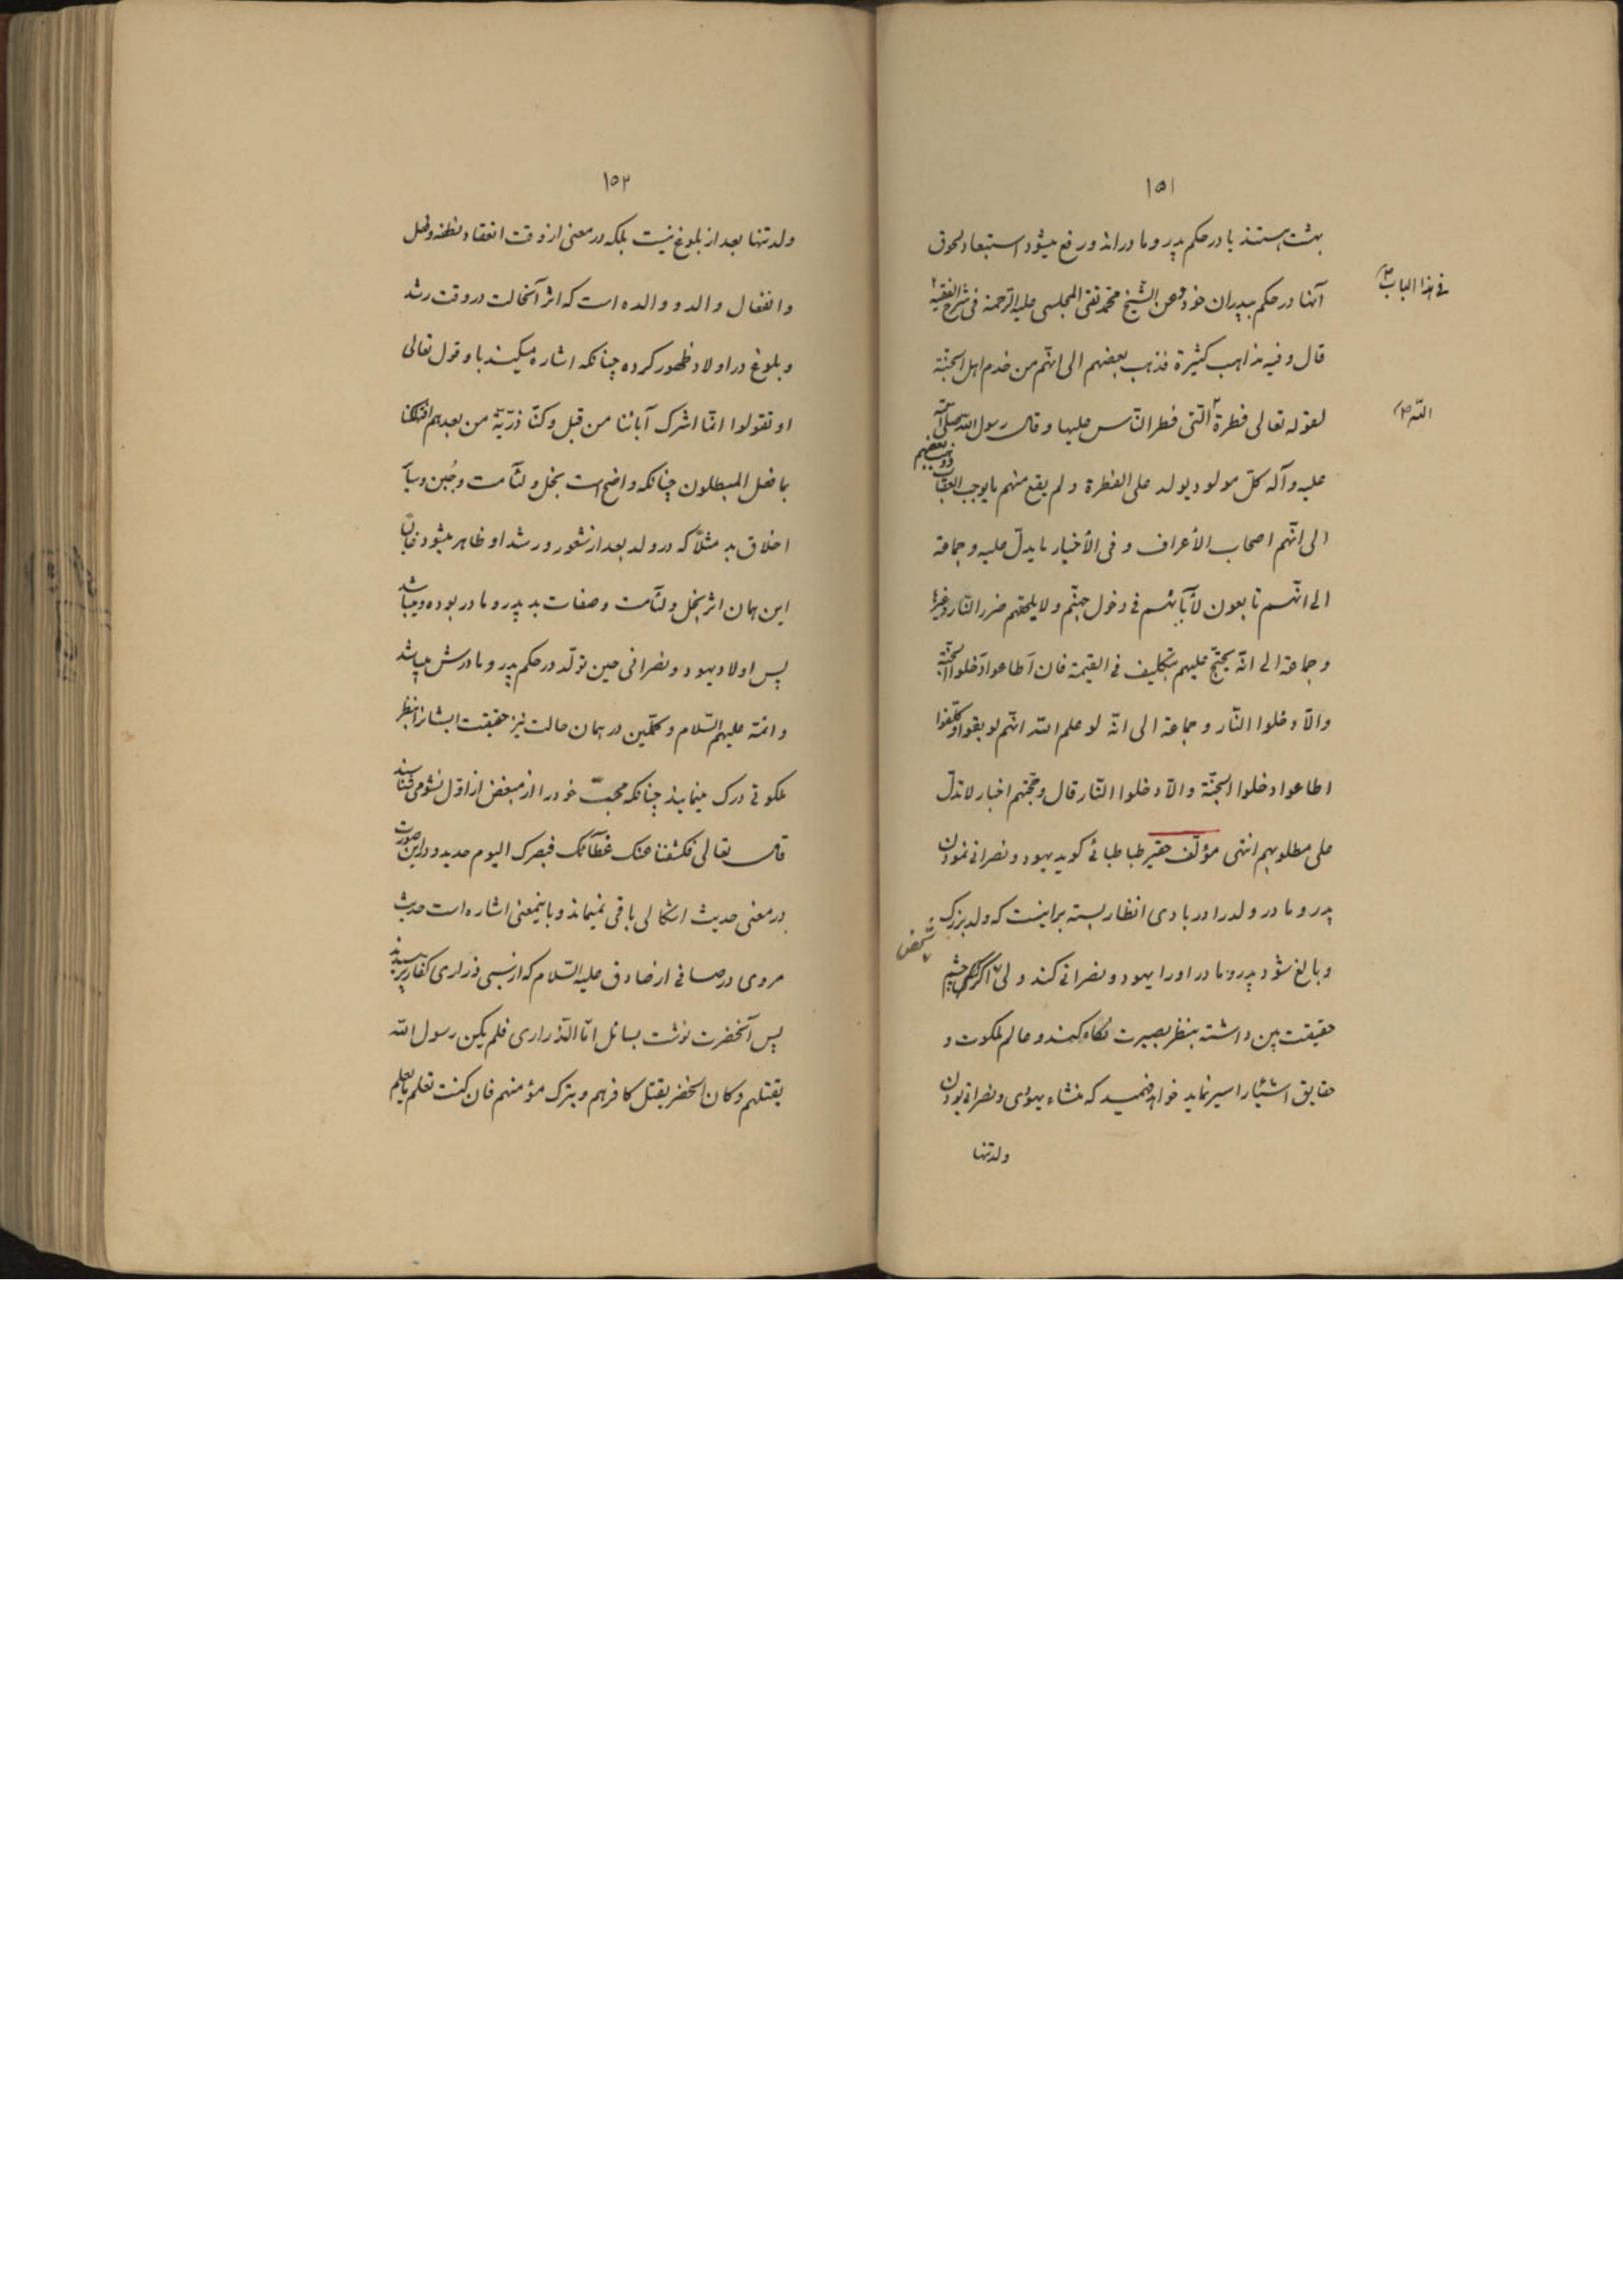 ۱۵۱
بهشت هستند یا در حکم پدر و مادراند و رفع میشود استبعاد لحوق
آنها در حکم بپدران خود و عن الشیخ محمّد تقی المجلسی علیه الرحمة فی شرح الفقیه
فی هذا الباب
قال و فیه مذاهب کثیرة فذهب بعضهم الی انّهم من خدم اهل الجنّة
لقوله تعالی فطرة الّتی فطر النّاس علیها و قال رسول الله صلّی الله
اللّه
علیه و آله کلّ مولود یولد علی الفطرة و لم یقع منهم ما یوجب العقاب و ذهب بعضهم
الی انّهم اصحاب الأعراف و فی الأخبار ما یدلّ علیه و جماعة
الی انّهم تابعون لأبآئهم فی دخول جهنّم و لا یلحقهم ضرر النّار و غیرها
و جماعة الی انّه یحتجّ علیهم بتکلیف فی القیمة فان أطاعوا دخلوا الجنّة
و الّا دخلوا النّار و جماعة الی انّه لو علم الله انّهم لو بقوا و کلّفوا
اطاعوا دخلوا الجنّة و الّا دخلوا النّار قال و حجّتهم اخبار لا تدلّ
علی مطلوبهم انتهی مؤلّف حقیر طباطبائی گوید یهود و نصرانی نمودن
پدر و مادر ولد را در بادی انظار بسته براینست که ولد بزرگ
و بالغ شود پدر و مادر او را یهود و نصرانی کند ولی اگر شخص چشم
حقیقت بین داشته بنظر بصیرت نگاه کند و عالم ملکوت و
حقایق اشیا را سیر نماید خواهد فهمید که منشاء یهودی و نصرانی بودن
ولد تنها
۱۵۲
ولد تنها بعد از بلوغ نیست بلکه در معنی از وقت انعقاد نطفه و فعل
و انفعال والد و والده است که اثر آنحالت در وقت رشد
و بلوغ در اولاد ظهور کرده چنانکه اشاره میکند باو قول تعالی
او تقولوا انّما اشرک آبائنا من قبل و کنّا ذرّیّة من بعدهم افتهلکنا
بما فعل المبطلون چنانکه واضح است بخل و لئآمت و جُبن و سآیر
اخلاق بد مثلاً که در ولد بعد از شعور و رشد او ظاهر میشود
این همان اثر بخل و لئآمت و صفات بد پدر و مادر بوده و میباشد
پس اولاد یهود و نصرانی حین تولّد در حکم پدر و مادرش میباشد
و ائمّه علیهم السّلام و کمّلین در همان حالت نیز حقیقت ایشانرا بنظر
ملکوتی درک مینمایند چنانکه محبّ خود را از مبغض از اوّل نشو می شناسند
قال تعالی فکشفنا عنک غطآئک فبصرک الیوم حدید و در این صورت
در معنی حدیث اشکالی باقی نمیماند و باینمعنی اشاره است حدیث
مروی در صافی از صادق علیه السّلام که از سبی ذراری کفار پرسیدند
پس آنحضرت نوشت بسائل امّا الذّراری فلم یکن رسول الله
یقتلهم و کان الخضر یقتل کافرهم و یترک مؤمنهم فان کنت تعلم ما یعلم